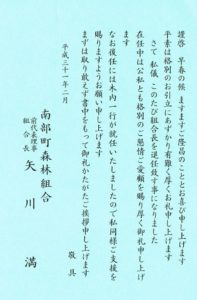 謹啓 早春の候 ますますご隆昌のこととお喜び申し上げます
平素は格別のお引立にあずかり有難く厚くお礼申し上げます
さて 私儀 このたび組合長を退任致す事になりました
在任中は公私とも格別のご懇情ご愛顧を賜り厚く御礼申し上げ
ます
なお後任には木内一行が就任いたしましたので私同様ご支援を
賜りますようお願い申し上げます
まずは取り敢えず書中をもって御礼かたがたご挨拶申し上げます
敬具
平成三十一年二月
南部町森林組合
前代表理事
組合長
矢川 満